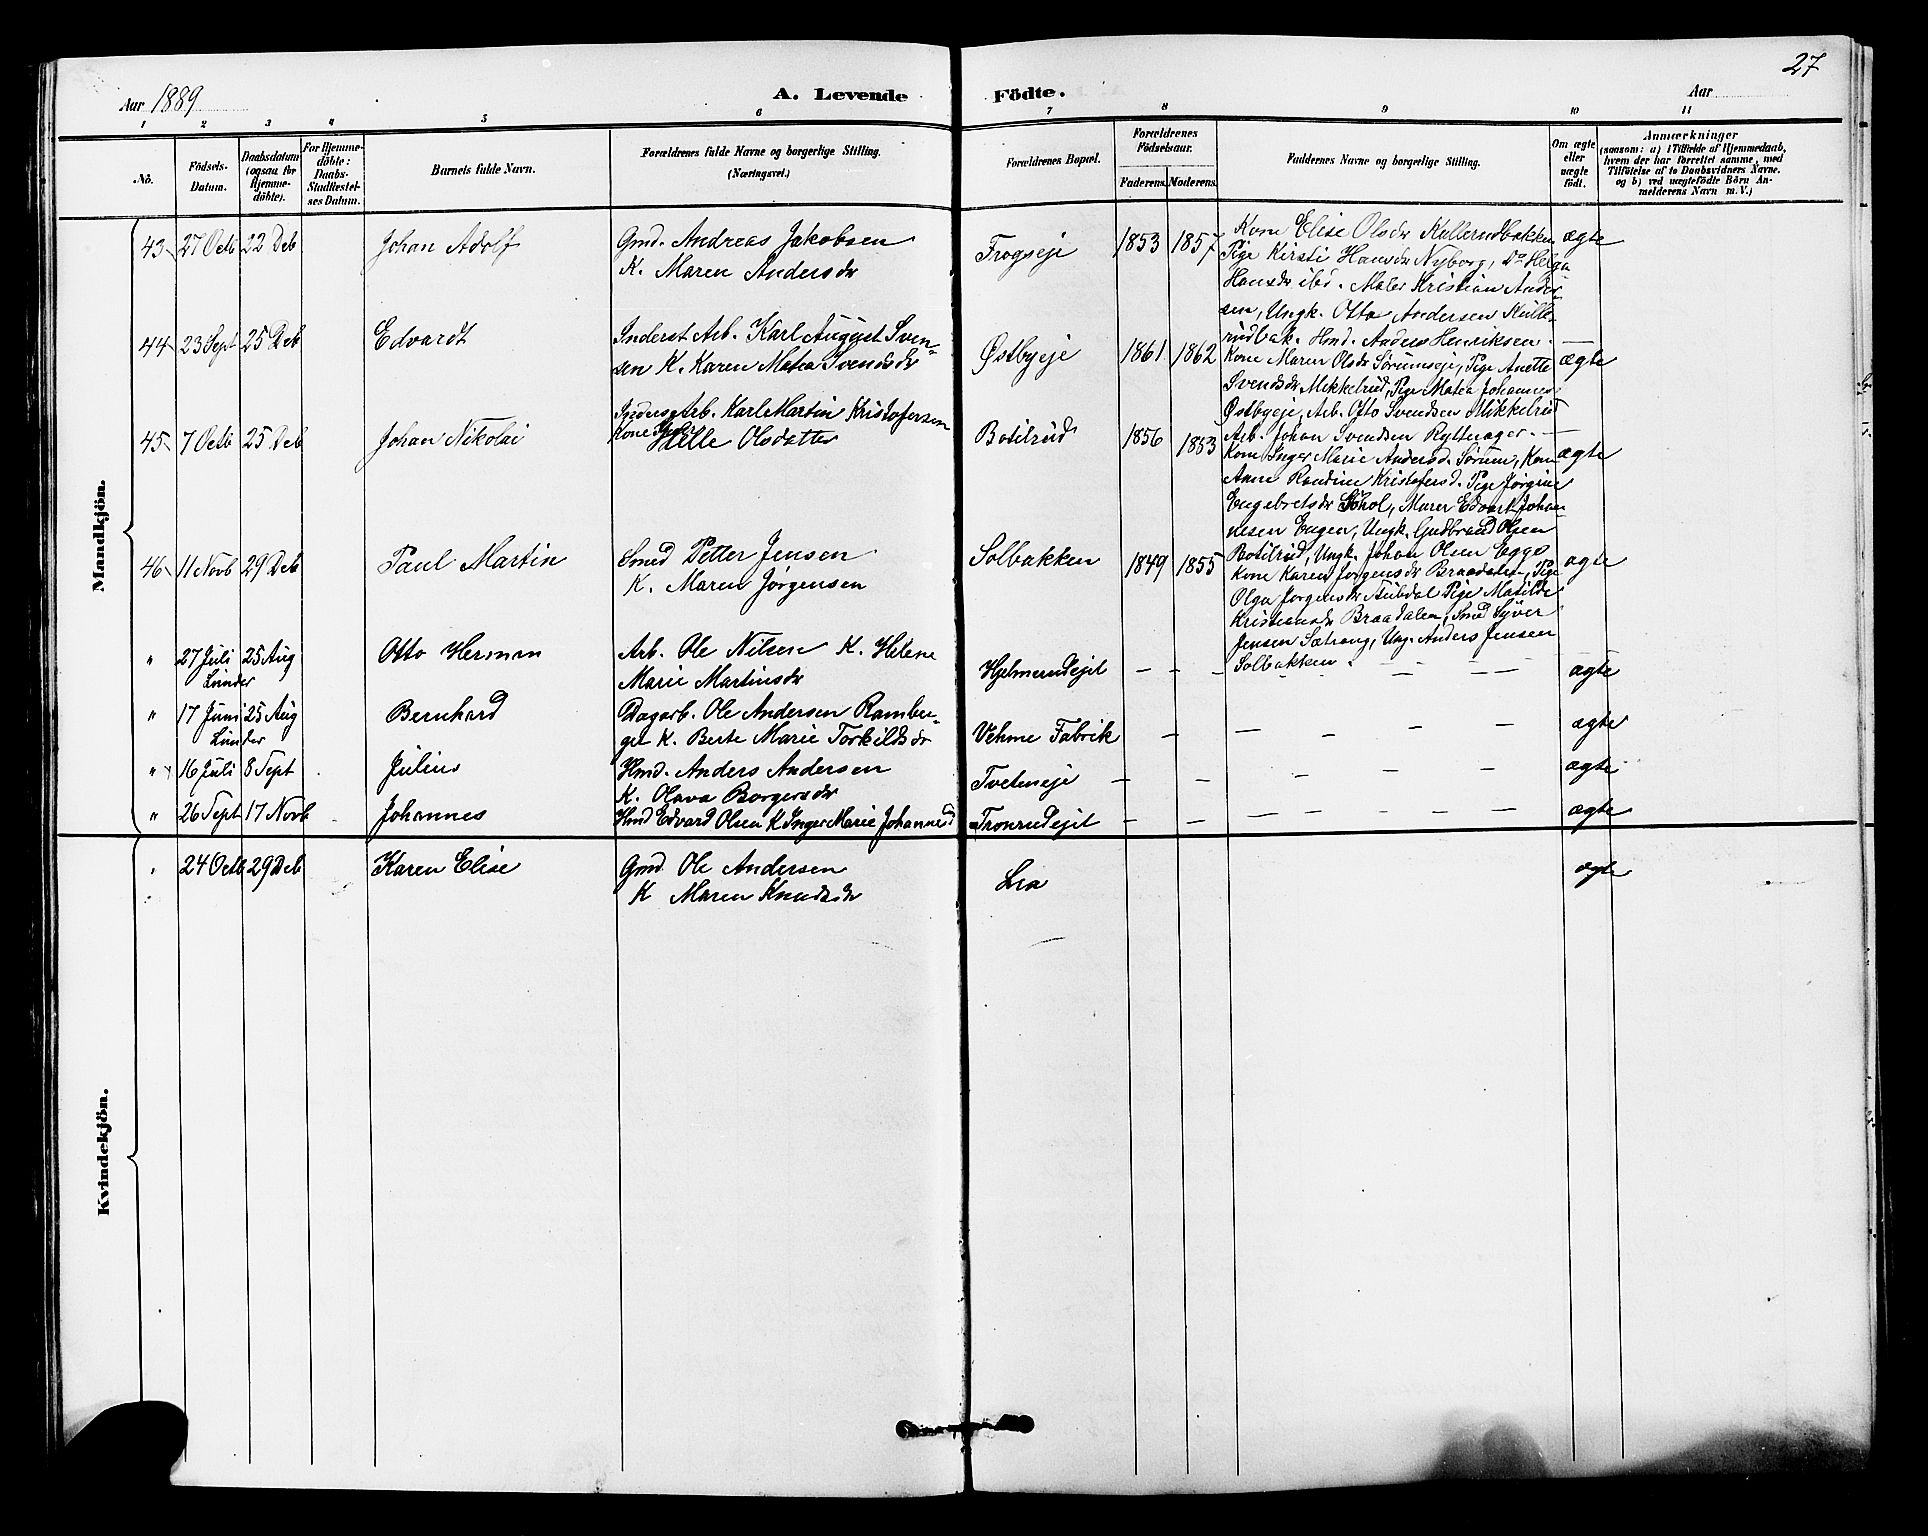 27
Aar 1889
A. Levende Födte.
Aar
1 2 3 4 5 6 7 8 9 10 11
No.
Födsels-
Datum.
Daabsdatum
(ogsaa for
Hjemme-
döbte).
For Hjemme-
döbte:
Daabs-
Stadfæstel-
ses Datum.
Barnets fulde Navn.
Forældrenes fulde Navne og borgerlige Stilling.
(Næringsvei.)
Forældrenes Bopæl.
Forældrenes
Födselsaar.
Faderens. Moderens.
Faddernes Navne og borgerlige Stilling.
Om ægte
eller
uægte
födt.
Anmærkninger
(saasom: a) i Tilfælde af Hjemmedaab,
hvem der har forrettet samme, med
Tilföielse af to Daabsvidners Navne.
og b) ved uægtefödte Börn An-
melderens Navn m. V.)
Mandkjön.
43 27 Octb 22 Deb Johan Adolf
Gmd. Andreas Jakobsen
K. Maren Andersdr
Frogseje 1853 1857
Kone Elise Olsdr Kullerudbakken
Pige Kirsti Hansdr Nyborg, Do Helga
Hansdr ibd. Maler Kristian Ander-
sen, Ungk. Otto Andersen Kulle-
rudbak. Hmd. Anders Henriksen.
ægte
44 23 Sept 25 Deb Edvardt
Inderst Arb. Karl August Sven-
sen K. Karen Matea Svendsdr
Østbyeje 1861 1862
Kone Maren Olsdr Sørumseje, Pige Anette
Svendsdr Mikkelrud, Pige Matea Johannes
Østbyeje, Arb. Otto Svendsen Mikkelrud
Arb. Johan Svendsen Rytterager.
ægte
45 7 Octb 25 Deb Johan Nikolai
Inders. Arb. Karl Martin Kristofersen
Kone Helle Olsdatter
Botilrud 1856 1853
Kone Inger Marie Andersd. Sørum, Kone
Anne Randine Kristofersd. Pige Jørgine
Engebretsdr Skhol, Murer Edvart Johan-
nesen Engen, Ungk. Gudbrand Olsen
Botilrud, Ungk. Johan Olsen Egge
ægte
46 11 Novb 29 Deb Paul Martin
Smed Petter Jensen
K. Maren Jørgensen
Solbakken 1849 1855
Kone Karen Jørgensdr Braadalen, Pige
Olga Jørgensdr Pige Matilde
Kristiansdr Braadalen, Smed Syver
Jensen Sætrang, Ung. Anders Jensen
Solbakken.
ægte
" 27 Juli 25 Aug Otto Herman
Lunder
Arb. Ole Nilsen K. Helene
Marie Martinsdr
Hjelmerudejet — — — — — — — ægte
" 17 Juni 25 Aug Bernhard
Lunder
Dagarb. Ole Andersen Ramber-
get K. Berte Marie Torkildsdr
Vehme Fabrik — — — — — ægte
" 16 Juli 8 Sept Julius
Hmd. Anders Andersen
K. Olava Borgersdr
Tveteneje — — — — — — ægte
" 26 Sept 17 Novb Johannes
Hmd Edvard Olsen K Inger Marie Johannesd
Tronrudejet — — — — — — — ægte
Kvindekjön.
" 24 Octb 29 Deb Karen Elise
Gmd Ole Andersen
K Maren Knudsdr
Lia ægte